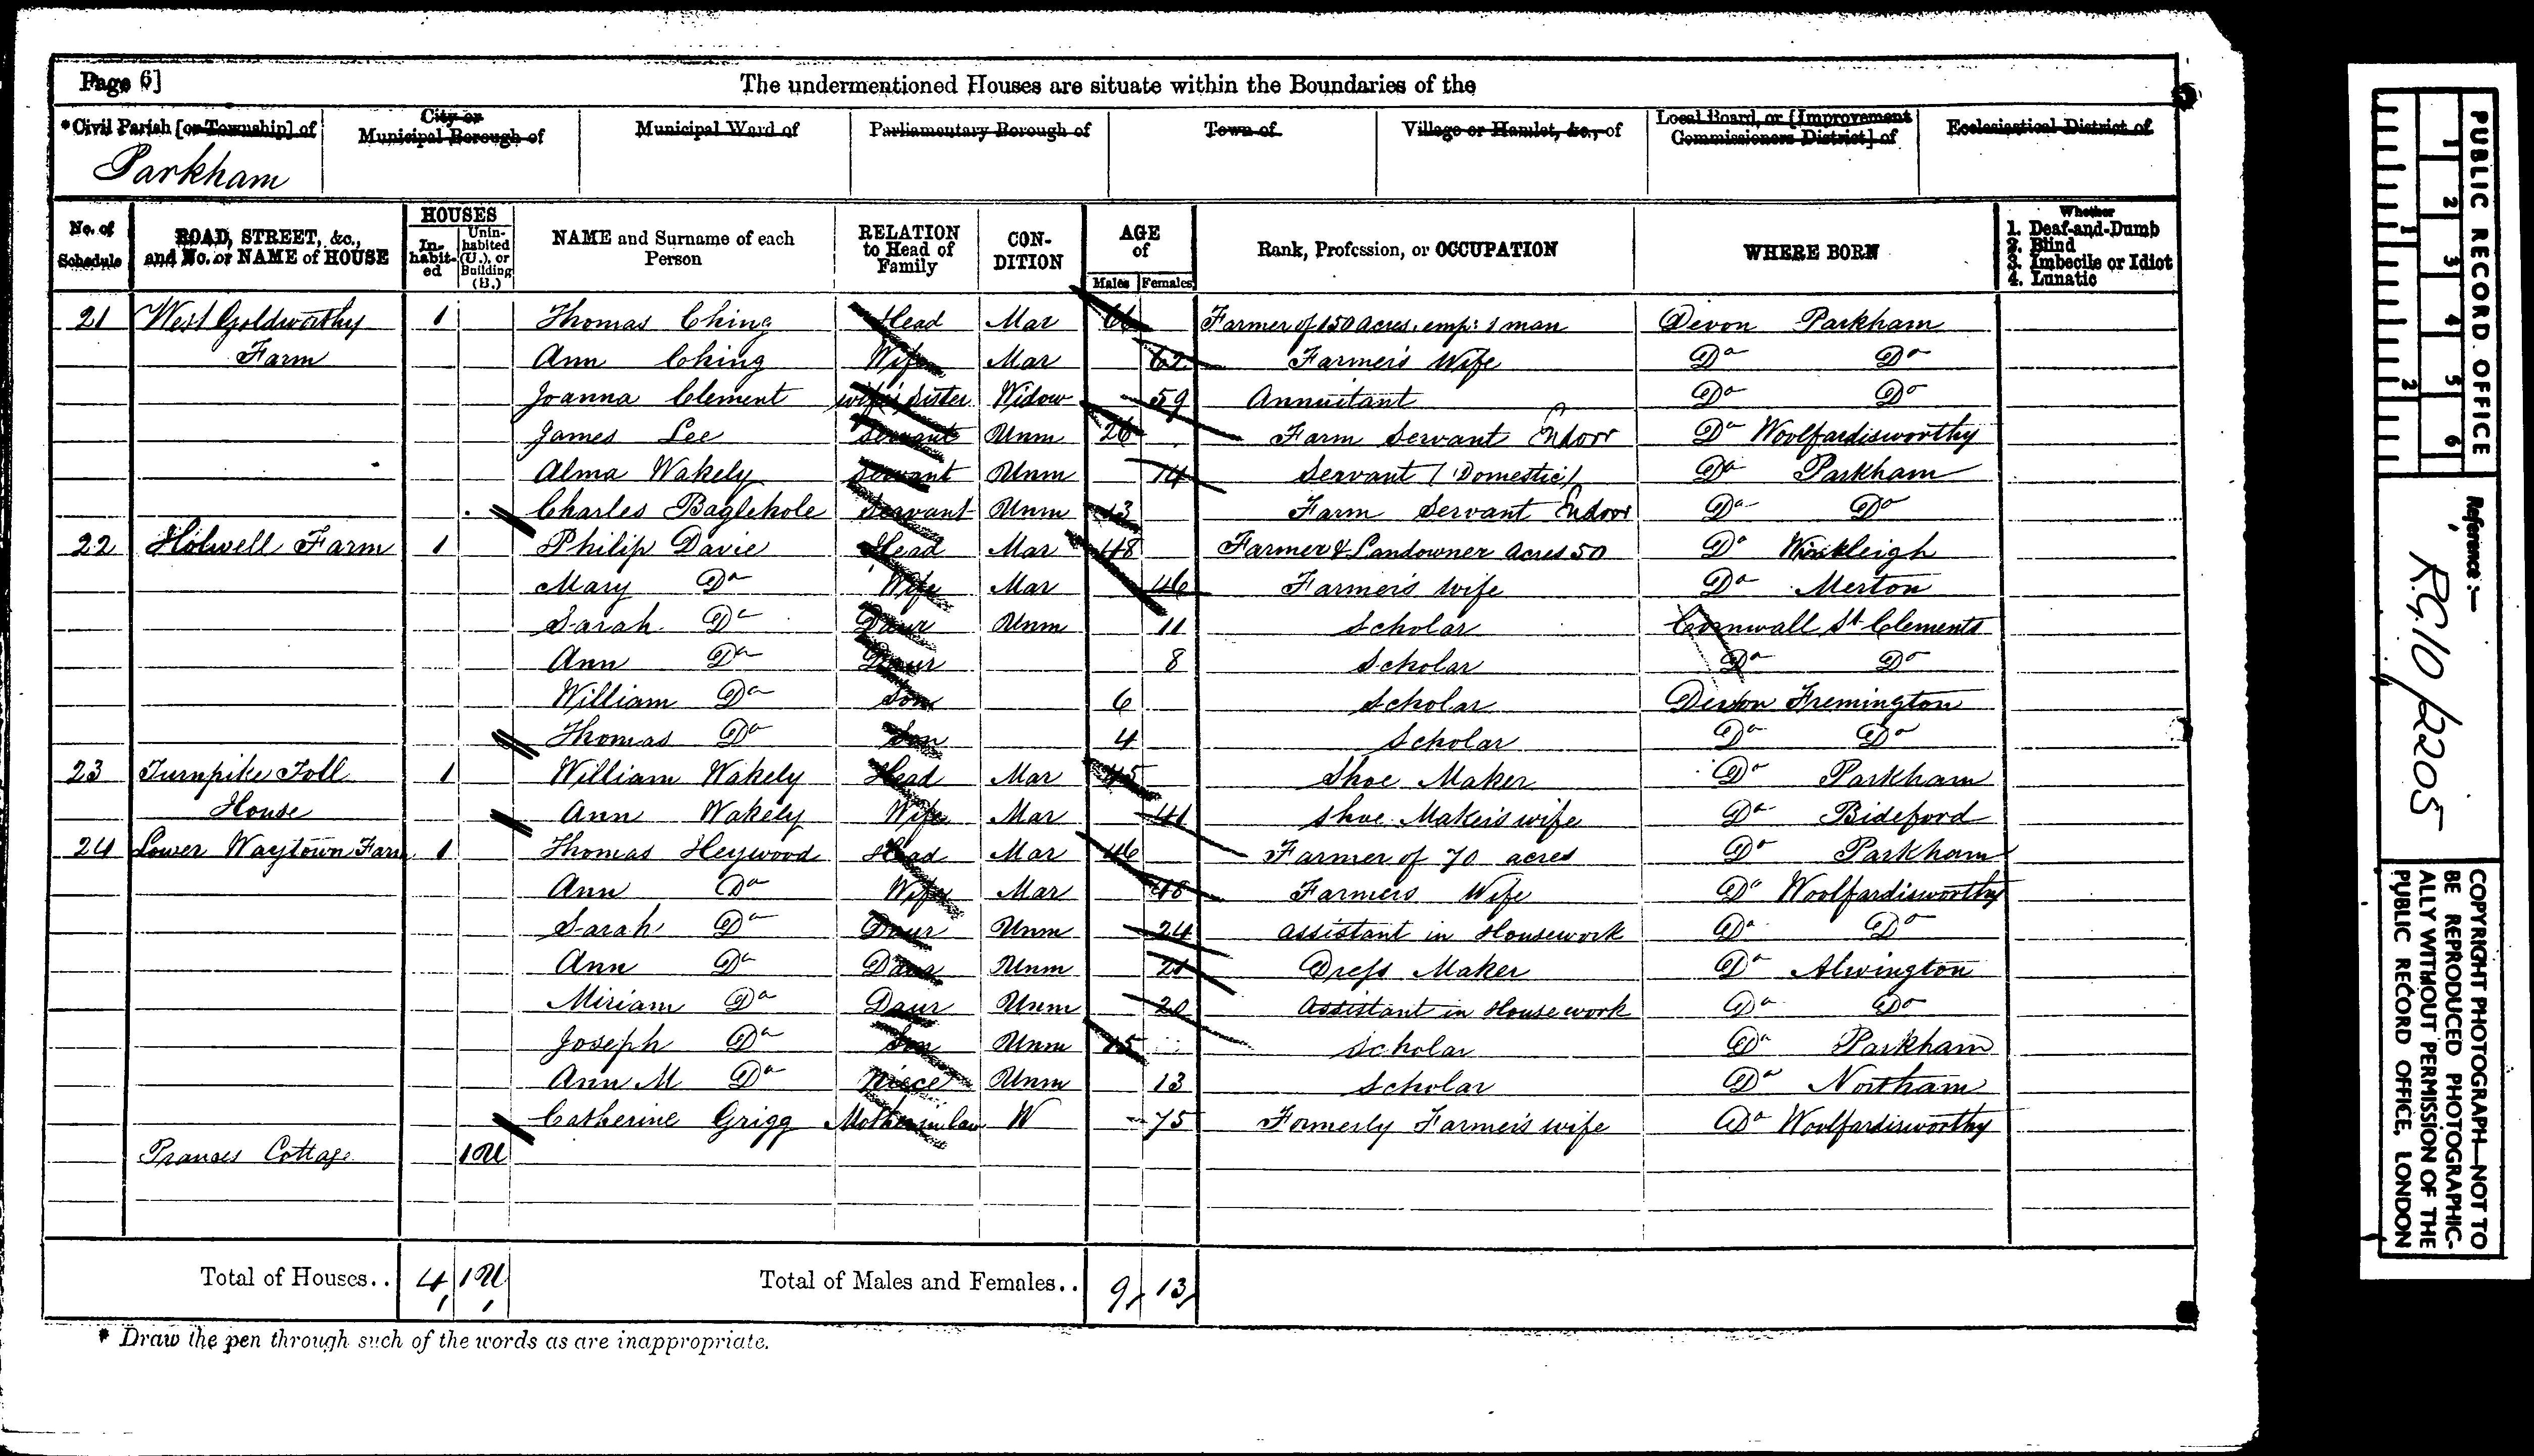 Page 6]
The undermentioned Houses are situate within the Boundaries of the
*Civil Parish [or Township] of
City or Municipal Borough of
Municipal Ward of
Parliamentary Borough of
Town of
Village or Hamlet, &c., of
Local Board, or [Improvement Commissioners District] of
Ecclesiastical District of
Parkham
No. of Schedule
ROAD, STREET, &c., and No. or NAME of HOUSE
HOUSES
In-habit-ed
Unin-habited (U.), or Building (B.)
NAME and Surname of each Person
RELATION to Head of Family
CON-DITION
AGE of
Males Females
Rank, Profession, or OCCUPATION
WHERE BORN
Whether
1. Deaf-and-Dumb
2. Blind
3. Imbecile or Idiot
4. Lunatic
21 West Goldworthy 1 Thomas Ching Head Mar 66 Farmer of 150 acres. emp: 1 man Devon Parkham
Farm Ann Ching Wife Mar 62 Farmer's Wife Do Do
Joanna Clement wife's sister Widow 59 Annuitant Do Do
James Lee Servant Unm 26 Farm Servant Indoor Do Woolfardisworthy
Alma Wakely Servant Unm 14 Servant (Domestic) Do Parkham
Charles Baglehole Servant Unm 13 Farm Servant Indoor Do Do
22 Holwell Farm 1 Philip Davie Head Mar 48 Farmer & Landowner acres 50 Do Winkleigh
Mary Do Wife Mar 46 Farmer's wife Do Merton
Sarah Do Daur Unm 11 Scholar Cornwall St Clements
Ann Do Daur 8 Scholar Do Do
William Do Son 6 Scholar Devon Fremington
Thomas Do Son 4 Scholar Do Do
23 Turnpike Toll 1 William Wakely Head Mar 45 Shoe Maker Do Parkham
House Ann Wakely Wife Mar 41 Shoe Maker's wife Do Bideford
24 Lower Waytown Farm 1 Thomas Heywood Head Mar 46 Farmer of 70 acres Do Parkham
Ann Do Wife Mar 48 Farmers Wife Do Woolfardisworthy
Sarah Do Daur Unm 24 assistant in Housework Do Do
Ann Do Daur Unm 21 Dress Maker Do Alwington
Miriam Do Daur Unm 20 Assistant in Housework Do Do
Joseph Do Son Unm 15 Scholar Do Parkham
Ann M Do Niece Unm 13 Scholar Do Northam
Catherine Grigg Mother in law W 75 Formerly Farmer's wife Do Woolfardisworthy
Cottage 1U
Total of Houses.. 4 1U Total of Males and Females.. 9 13
* Draw the pen through such of the words as are inappropriate.
PUBLIC RECORD OFFICE
1 2 3 4 5 6
1 2
Reference :—
R.G. 10/2205
COPYRIGHT PHOTOGRAPH—NOT TO
BE REPRODUCED PHOTOGRAPHIC-
ALLY WITHOUT PERMISSION OF THE
PUBLIC RECORD OFFICE, LONDON